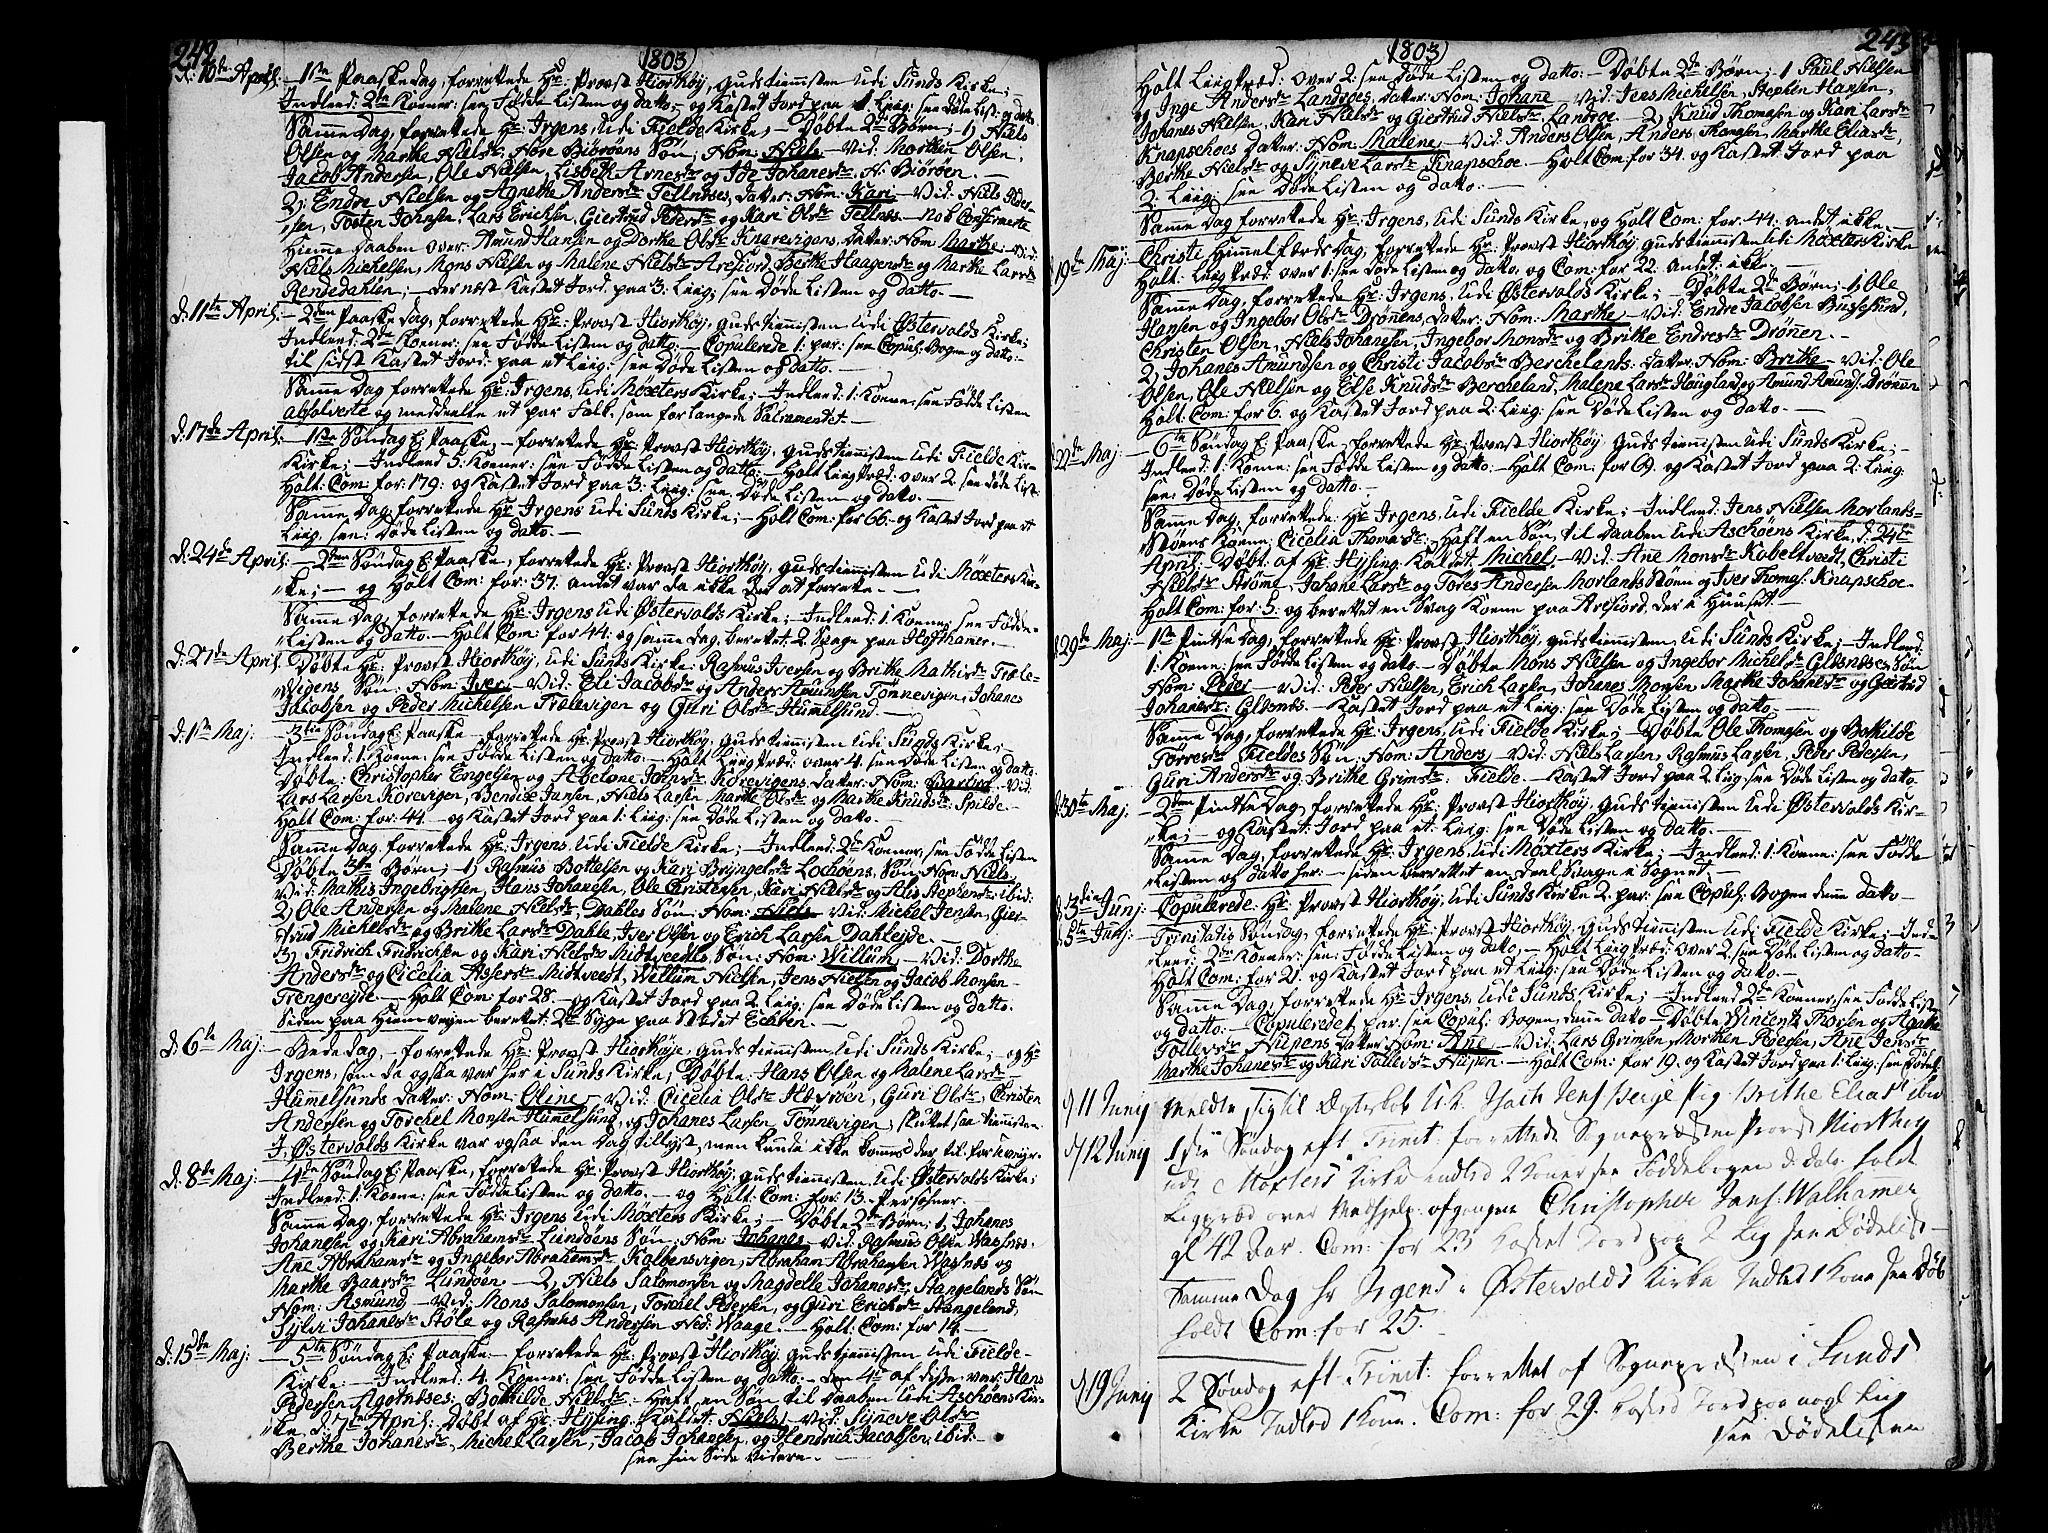 242.
1803
d: 10de April. – 1ste Paaskedag, forrettede Hr: Provst Hiorthøy, Gudstienisten udi Sunds Kirke; –
Indleed: 2de Koener: see Fødde Listen og datto, – og Kastet Jord paa 1 Liig: see Døde List: og datto.
Samme Dag, forrettede Hr: Irgens, udi Fielde Kirke, – Døbte 2de Børn; 1) Niels
Olsen og Marthe Nielsdr: Nore Biorøens Søn; Nom: Niels – Vid: Morthen Olsen,
Jacob Andersen, Ole Nielsen, Lisbeth Arnesdr og Ide Johanesdr N: Biørøen. –
2) Endre Nielsen og Agnethe Andersdr Tellnæses, Datter: Nom: Kari – Vid: Niels Peder-
sen, Tosten Johnsen, Lars Erichsen, Giertrud Pedersdr og Kari Olsdr Tellnæs – nok Confirmerte
Hieme Daaben over: Amund Hansen og Dorthe Olsdr Knarrevigens, Datter: Nom: Marthe – Vid:
Niels Michelsen, Mons Nielsen og Malene Nielsdr Arefiord, Berthe Haagensdr og Marthe Larsdr
Rendedahlen; – dernæst Kastet Jord paa 3: Liig; see Døde Listen og datto. –
d: 11te April. – 2den Paaske Dag, forrettede Hr: Provst Hiorthøy, Guds tienisten udi Østervolds Kirke;
Indleed: 2de Koener: see Fødde Listen og datto; – Copulerede 1: par: see Copul: Bogen og datto: –
til sidst Kastet Jord paa et Liig: see Døde Listen og datto. –
Samme Dag forrettede Hr: Irgens, udi Møxters Kirke; – Indleed: 1: Koene: see Fødde Listen
absolverte og meddeelte et par Folk, som forlangede Sacramentet. –
d: 17de April: – 1ste Søndag E: Paaske, – forrettede Hr: Provst Hiorthøy, Guds tienisten udi Fielde Kir-
Kirke; – Indleed 5: Koener: see Fødde Listen og datto; – Holt Liig Præd: over 2 see Døde List:
Holt: Com: for: 179: og Kastet Jord paa 3: Liig: see Døde Listen og datto. –
Samme Dag, forrettede Hr Irgens udi Sunds Kirke; – Holt Com: for 66. – og Kastet Jord paa et
Liig, see: Døde Listen og datto. –
d: 24de April: – 2den Søndag E: Paaske, forrettede Hr: Provst Hiorthøy, Guds tienisten udi Møxters Kir-
ke; – og Holt Com: for: 37. andet var da ikke der at forrette. –
Samme Dag, forrettede Hr: Irgens udi Østervolds Kirke; – Indleed: 1 Koene; see Fødde-
Listen og datto. – Holt Com: for 44: og samme Dag, berettet: 2 Svage paa Hofthamer. –
d: 27de April. Døbte Hr: Provst Hiorthøy, udi Sunds Kirke: Rasmus Iversen og Brithe Mathisdr Træle-
vigens Søn: Nom: Iver – Vid: Eli Jacobsdr og Anders Amunsen Tønnevigen, Johanes
Jacobsen og Peder Michelsen Trelevigen og Guri Olsdr Hummelsund. –
d: 1ste Maj: – 3die Søndag E: Paaske – forrettede Hr: Provst Hiorthøy, Guds tienisten udi Sunds Kirke; –
Indleed: 1 Koene: see Fødde Listen og datto. – Holt Liig Præd: over 4. see Døde Listen og datto.
Døbte: Christopher Engelsen og Abelone Johnsdr Korevigens, Datter: Nom: Barbro. Vid:
Lars Larsen Korevigen, Bendixe Jansen, Niels Larsen, Marthe Olsdr og Marthe Knudsdr Spilde.
Holt Com: for: 44. – og Kastet Jord paa 1: Liig: see Døde Listen og datto. –
Samme Dag, forrettede Hr: Irgens, udi Fielde Kirke; – Indleed: 2de Koener, see Fødde Listen
Døbte 3de Børn; – 1) Rasmus Bottelsen og Kari Bryngelsdr Lochøens, Søn: Nom: Niels,
Vid: Mathis Ingebrigtsen, Hans Johanesen, Ole Christensen, Kari Nielsdr og Alis Stephensdr ibid:
2) Ole Andersen og Malene Nielsdr, Dahles Søn: Nom: Niels – Vid: Michel Jensen, Gier-
trud Michelsdr og Brithe Larsdr Dahle, Iver Olsen og Erich Larsen Dahleijde. –
3) Fridrich Fridrichsen og Kari Nielsdr Midtveedts, Søn: Nom: Willum – Vid: Dorthe
Andersdr og Cicelia Assersdr Midtveedt, Willum Nielsen, Jens Nielsen og Jacob Monsen
Trengereijde. – Holt Com: for 28. – og Kastet Jord paa 2 Liig: see Døde Listen og datto.
Siden paa Hiemveijen berettet: 2de Syge paa Stædet Echben. –
d: 6te Maj: – Bede dag, – forrettede Hr: Provst Hiorthøye, Guds tienisten udi Sunds Kirke; – og Hr
Irgens, som da ogsaa var her i Sunds Kirke, Døbte: Hans Olsen og Malene Larsdr
Humelsunds Datter: Nom: Oline – Vid: Cicelia Olsdr Algrøen, Guri Olsdr, Christen
Andersen og Torchel Monsen Humelsund, og Johanes Larsen Tønnevigen, sluttet saa tienisten.
I Østervolds Kirke var ogsaa den Dag tillyst, men kunde ikke kommes der til for uveijr. –
d: 8de Maj: – 4de Søndag E: Paaske, forrettede Hr: Provst Hiorthøy, Guds tienisten udi Østervolds Kirke;
Indleed: 1: Koene: see Fødde Listen og datto. – og Holt: Com: for: 13. – Personer. –
Samme Dag, forrettede Hr: Irgens udi Møxters Kirke; – Døbte 2de Børn; 1) Johanes
Johanesen og Kari Abrahamsdr Lundøens Søn: Nom: Johanes – Vid: Rasmus Olsen Wasnæs,
Ane Abrahamsdr og Ingebor Abrahamsdr Kalvensvigen, Abraham Abrahamsen Wasnæs og
Marthe Baarsdr Lundøen. – 2) Niels Salomonsen og Magdelle Johanesdr Stangelands Søn
Nom: Asmund – Vid: Mons Salomonsen, Torchel Pedersen, og Guri Erichsdr Stangeland,
Sylvi Johanesdr Støle og Rasmus Andersen Ned: Waage. – Holt: Com: for 14. –
d: 15de Maj: – 5te Søndag E: Paaske – forrettede Hr: Provst Hiorthøy, Guds tienisten udi Fielde-
Kirke: – Indleed: 4. Koener: see Fødde Listen og datto: – den 4de af disse var: Hans
Pedersen Agotnæses: Bothilde Nielsdr – Haft en Søn til Daaben udi Aschøens Kir-
ke d: 7de April: Døbt af Hr: Hysing, Kaldet: Niels – Vid: Syneve Olsdr
Berthe Johanesdr, Michel Larsen, Jacob Johanesen, og Hendrich Jacobsen, ibid: –
see hin Side videre. –
243
1803
Holt Liig Præd: over 2: see Døde Listen og datto: – Døbte 2de Børn; 1 Paul Nielsen
og Inge Andersdr Landroes, Datter: Nom: Johane – Vid: Jens Michelsen, Stephen Hansen,
Johanes Nielsen, Kari Nielsdr og Giertrud Nielsdr Landroe. – 2) Knud Thomasen og Kari Larsdr
Knapschoes Datter: Nom: Malene – Vid: Anders Olsen, Anders Thomasen, Marthe Eliasdr,
Berthe Nielsdr og Syneve Larsdr Knapschoe. – Holt Com: for 34. og Kastet: Jord paa
2: Liig: see Døde Listen og datto. –
Samme Dag forrettede Hr: Irgens, udi Sunds Kirke, og Holt Com: for: 44: andet ikke –
d: 19de Maj: – Christi Himmelfærds Dag, forrettede Hr: Provst Hiorthøy, Guds tienisten udi Møxters Kirke
Holt: Liig Præd: over 1: see Døde Listen og datto. og Com: for 22. andet: ikke. –
Samme Dag, forrettede Hr: Irgens, udi Østervolds Kirke; – Døbte 2de Børn; 1) Ole
Hansen og Ingebor Olsdr Drønens, Datter: Nom: Marthe – Vid: Endre Jacobsen Bussesund,
Christen Olsen, Niels Johanesen, Ingebor Monsdr og Brithe Endresdr Drønen. –
2) Johanes Amundsen og Christi Jacobsdr Berchelands: Datter: Nom: Brithe – Vid: Ole
Olsen, Ole Nielsen og Else Knudsdr Bercheland, Malene Larsdr Haugland, og Amund Amunds: Drønen
Holt: Com: for 6. og Kastet Jord paa 2: Liig: see Døde Listen og datto. –
d: 22de Maj: – 6te Søndag E: Paaske, forrettede Hr: Provst Hiorthøy, Guds tienisten udi Sunds Kirke;
Indleed: 1: Koene: see Fødde Listen og datto. – Holt Com: for 69. og Kastet Jord paa 2: Liig:
see: Døde Listen og datto. –
Samme Dag, forrettede: Hr: Irgens, udi Fielde Kirke; – Indleed: Jens Nielsen Morlands-
Støens Koene, Cicelia Thomasdr: Haft en Søn, til Daaben udi Aschøens Kirke, d: 24de
April: Døbt: af Hr: Hysing, Kaldet: Michel – Vid: Ane Monsdr Kobeltvedt, Christi
Nielsdr Strøme, Johane Larsdr og Tores Andersen Morlands Støen og Iver Thomas: Knapschoe –
Holt Com: for: 5: og berettet en Svag Koene paa Arefiord, der i Huuset: –
d: 29de Maj: – 1ste Pintse Dag, forrettede Hr: Provst Hiorthøy, Guds tienisten, udi Sunds Kirke; – Indleed:
1: Koene: see Fødde Listen og datto. – Døbte: Mons Nielsen og Ingebor Michelsdr Glesnæses, Søn
Nom: Peder – Vid: Peder Nielsen, Erich Larsen, Johanes Monsen, Marthe Johanesdr og Geertrud
Johanesdr: Glesnæs – Kastet: Jord paa et Liig: see Døde Listen og datto. –
Samme Dag, forrettede Hr: Irgens, udi Fielde Kirke; – Døbte Ole Thomasen og Bothilde
Torresdr Fieldes, Søn: Nom: Anders – Vid: Niels Larsen, Rasmus Larsen, Pehr Petersen,
Guri Andersdr og Brithe Grimsdr: Fielde. – Kastet Jord paa 2 Liig: see Døde Listen og datto.
d: 30te Maj: – 2den Pintse Dag, forrettede Hr: Provst Hiorthøy, Guds tienisten udi Østervolds Kir-
ke; – og Kastet: Jord paa et: Liig: see Døde Listen og datto. –
Samme Dag, forrettede Hr: Irgens, udi Møxters Kirke; – Indleed: 1: Koene: see Fødde
Listen og datto her: – siden berettet en deel Svage i Sognet. –
d: 3die Junj: Copulerede: Hr: Provst Hiorthøy, udi Sunds Kirke 2. par: see Copul: Bogen denne datto –
d: 5te Junj: Trinitatis Søndag, forrettede Hr: Provst Hiorthøy, Guds tienisten udi Fielde Kirke; – Ind-
leed: 2de Koener: see: Fødde Listen og datto. – Holt Liig Præd: over 2. see Døde Listen og datto –
Holt Com: for 21. og Kastet Jord paa et Liig: see Døde Listen og datto. –
Samme Dag, forrettede Hr: Irgens, udi Sunds Kirke; – Indleed 2de Koener, see Fødde List:
og datto: – Copuleredet par: see Copul: Bogen, denne datto – Døbte Vincentz Thorsen og Agathe
Tollevsdr Nipens Datter Nom: Ane – Vid: Lars Grimsen, Morthen Roegen, Ane Jensdr
Marthe Johanesdr og Kari Tollevsdr Nipen. – Holt Com: for 19. og Kastet Jord paa 1: Liig: see Dødel:
d 11 Junij Meldte sig til Brithe Elias ibid
d 12 Junij 1ste Søndag eft Trinit: forrettede Sognepræsten Provst Hiorthøy
udi Møxters Kirke indled 2 Koner see Føddebogen d. dato. holdt
Ligpræd over Medhjelp: afgangne Christopher Jans: Walhamer
gl 42 Aar. Com: for 23 kastet Jord paa 2 Lig see Dødelist –
Samme Dag hr Irgens i Østervolds Kirke Indled 1 Kone see Døb
holdt Com: for 25. –
d 19 Junij 2 Søndag eft Trinit: forrettet af Sognepræsten i Sunds
Kirke Indled 1 Kone. Com: for 29. kasted Jord paa nogl Liig
see Dødelisten